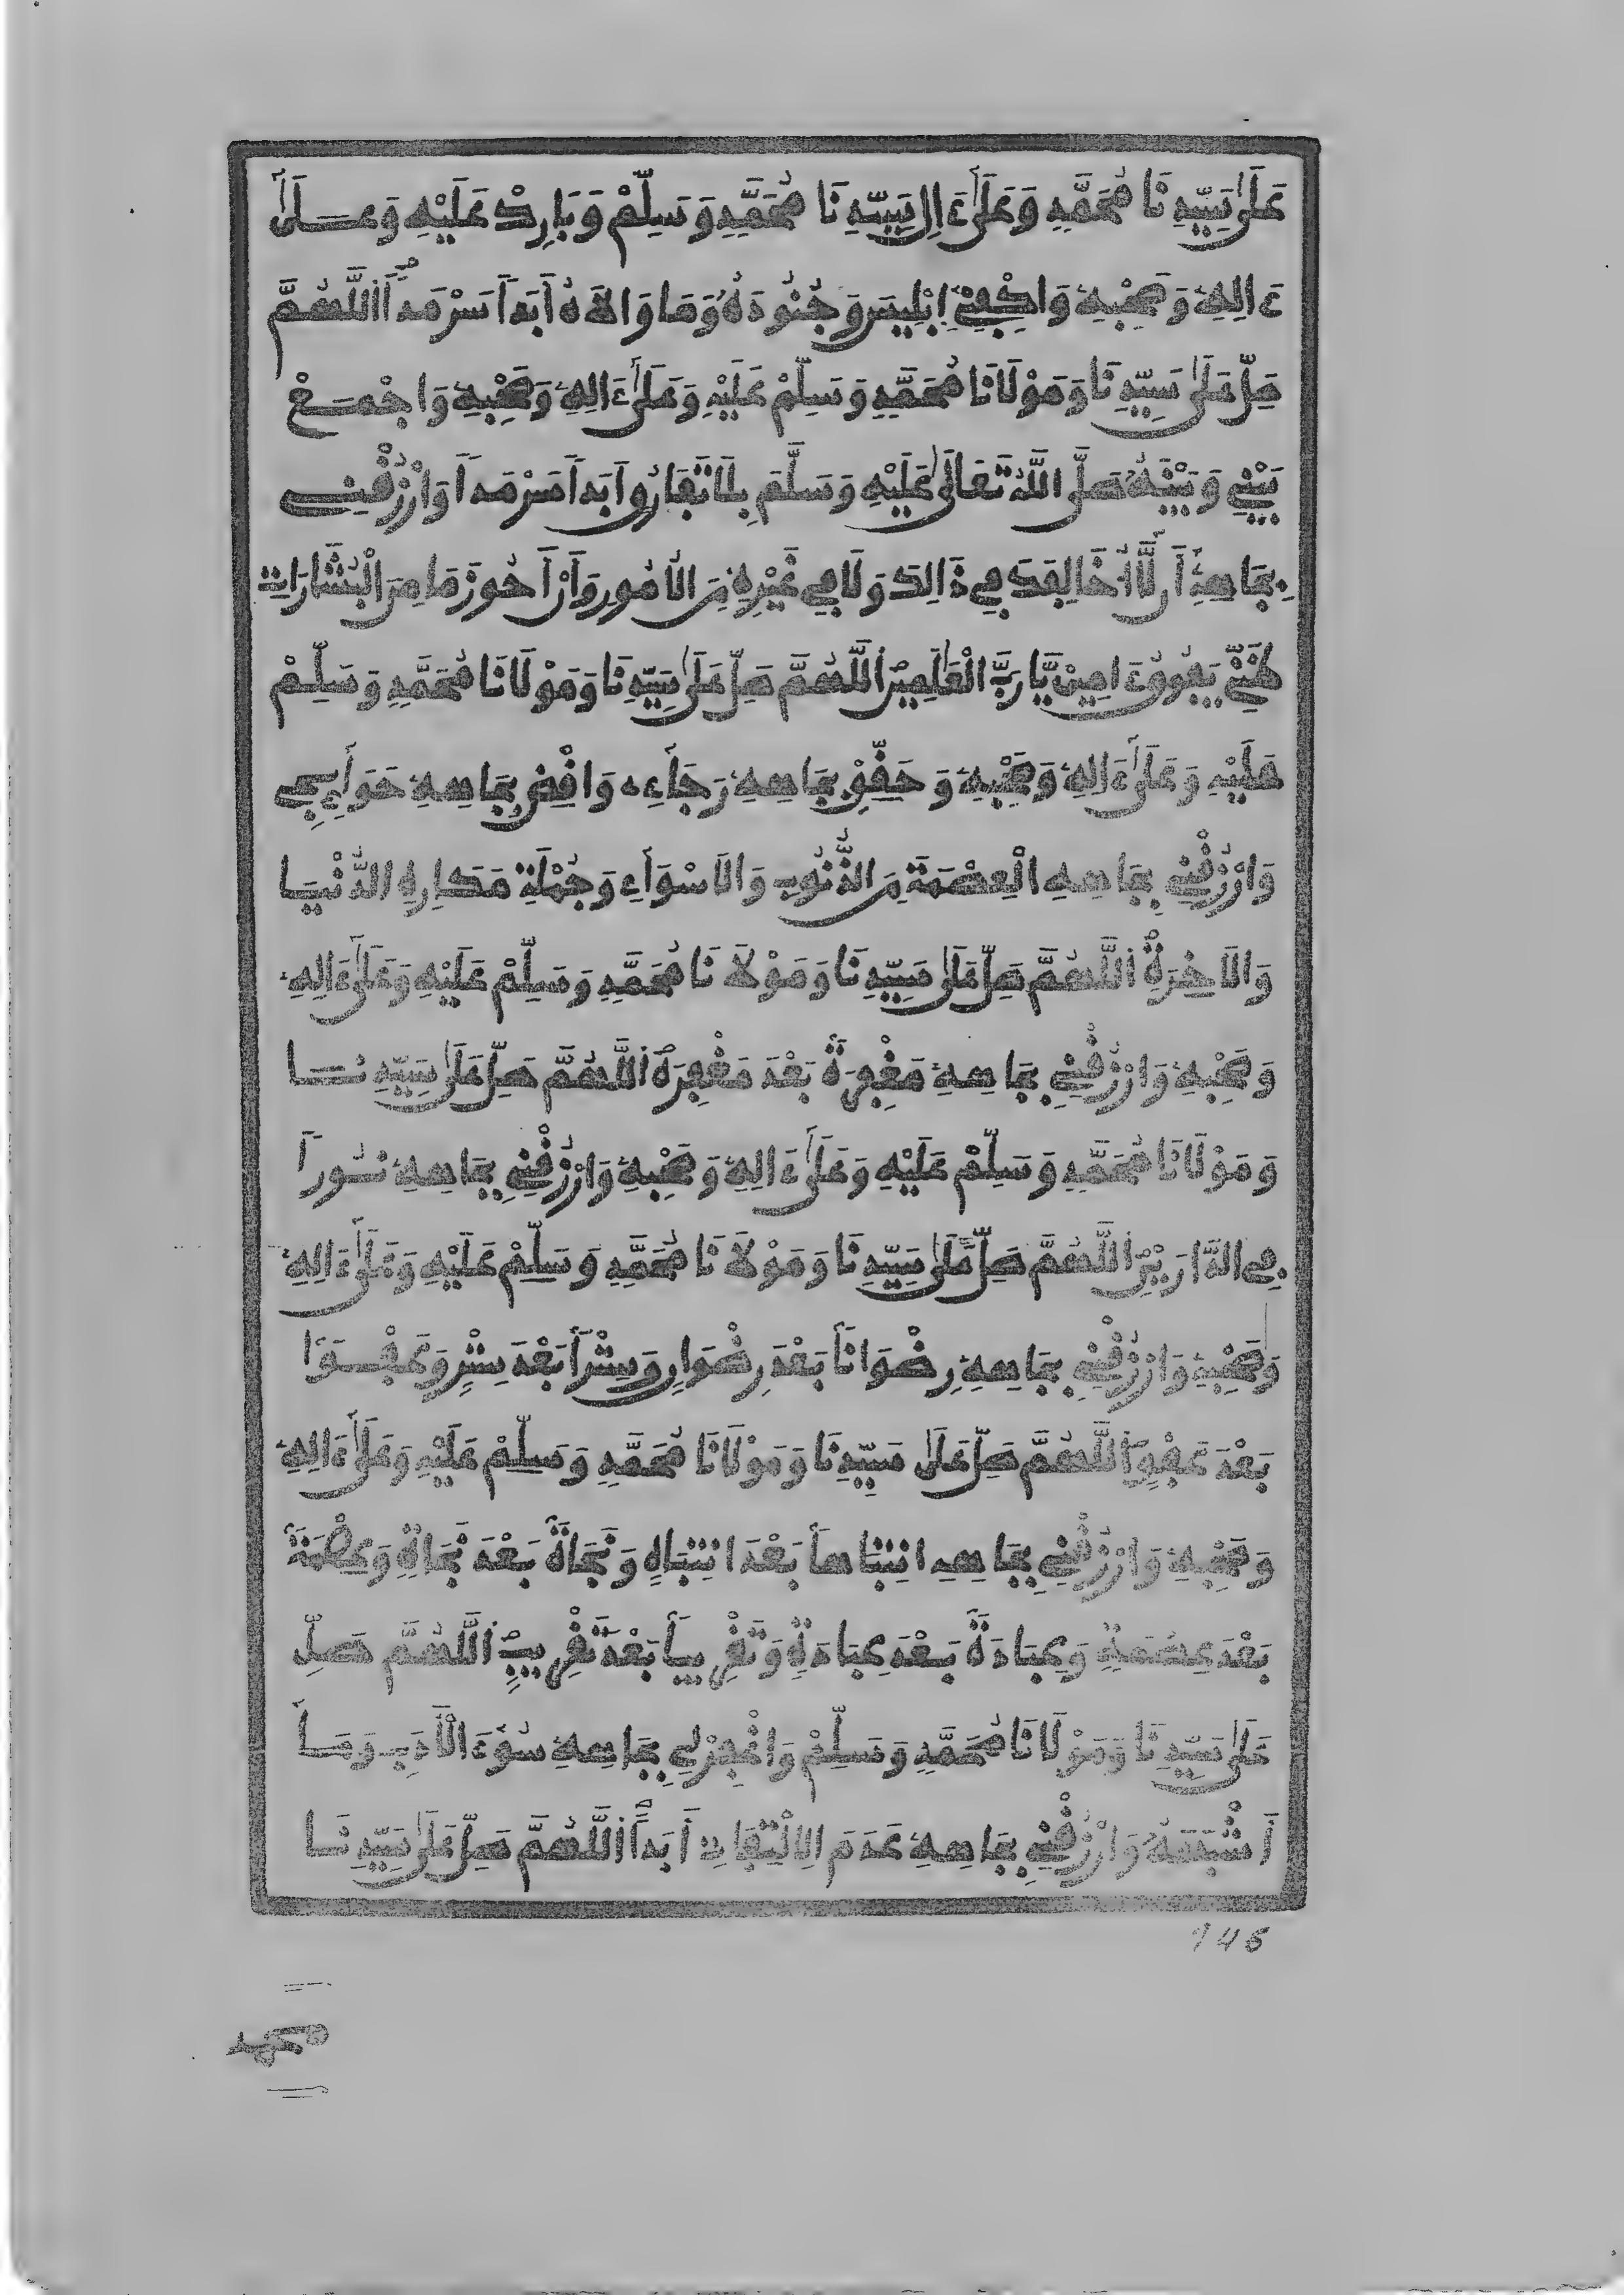 عَلَىٰ سَيِّدِنَا مُحَمَّدٍ وَعَلَىٰٓ ءَالِ سَيِّدِنَا مُحَمَّدٍ وَسَلِّمْ وَبَارِكْ عَلَيْهِ وَعَلَىٰٓ
ءَالِهِ وَصَحْبِهِ وَاكْفِنِي إِبْلِيسَ وَجُنُودَهُ وَمَا وَالَاهُ أَبَداً سَرْمَداً اللَّهُمَّ
صَلِّ عَلَىٰ سَيِّدِنَا وَمَوْلَانَا مُحَمَّدٍ وَسَلِّمْ عَلَيْهِ وَعَلَىٰٓ ءَالِهِ وَصَحْبِهِ وَاجْمَعْ
بَيْنِي وَبَيْنَهُ صَلَّى اللَّهُ تَعَالَىٰ عَلَيْهِ وَسَلَّمَ بِلَا تَفَارُقٍ أَبَداً سَرْمَداً وَارْزُقْنِي
بِجَاهِهِ أَن لَّا أُخَالِفَكَ فِي ذَالِكَ وَلَا فِي غَيْرِهِ مِنَ الْأُمُورِ وَأَنْ أَحُوزَ مَا مِنَ الْبُشَارَاتِ
يَفُوقُ ءَامِينَ يَا رَبَّ الْعَالَمِينَ اللَّهُمَّ صَلِّ عَلَىٰ سَيِّدِنَا وَمَوْلَانَا مُحَمَّدٍ وَسَلِّمْ
عَلَيْهِ وَعَلَىٰٓ ءَالِهِ وَصَحْبِهِ وَحَقِّقْ بِجَاهِهِ رَجَآءِي وَاقْضِ بِجَاهِهِ حَوَآئِجِي
وَارْزُقْنِي بِجَاهِهِ الْعِصْمَةَ مِنَ الذُّنُوبِ وَالْأَسْوَآءِ وَجُمْلَةِ مَكَارِهِ الدُّنْيَا
وَالْآخِرَةِ اللَّهُمَّ صَلِّ عَلَىٰ سَيِّدِنَا وَمَوْلَانَا مُحَمَّدٍ وَسَلِّمْ عَلَيْهِ وَعَلَىٰٓ ءَالِهِ
وَصَحْبِهِ وَارْزُقْنِي بِجَاهِهِ مَغْفِرَةً بَعْدَ مَغْفِرَةٍ اللَّهُمَّ صَلِّ عَلَىٰ سَيِّدِنَا
وَمَوْلَانَا مُحَمَّدٍ وَسَلِّمْ عَلَيْهِ وَعَلَىٰٓ ءَالِهِ وَصَحْبِهِ وَارْزُقْنِي بِجَاهِهِ نُوراً
فِي الدَّارَيْنِ اللَّهُمَّ صَلِّ عَلَىٰ سَيِّدِنَا وَمَوْلَانَا مُحَمَّدٍ وَسَلِّمْ عَلَيْهِ وَعَلَىٰٓ ءَالِهِ
وَصَحْبِهِ وَارْزُقْنِي بِجَاهِهِ رِضْوَاناً بَعْدَ رِضْوَانٍ وَسِتْراً بَعْدَ سِتْرٍ وَعَفْواً
بَعْدَ عَفْوٍ اللَّهُمَّ صَلِّ عَلَىٰ سَيِّدِنَا وَمَوْلَانَا مُحَمَّدٍ وَسَلِّمْ عَلَيْهِ وَعَلَىٰٓ ءَالِهِ
وَصَحْبِهِ وَارْزُقْنِي بِجَاهِهِ انْتِبَاهاً بَعْدَ انْتِبَاهٍ وَنَجَاةً بَعْدَ نَجَاةٍ وَعِصْمَةً
بَعْدَ عِصْمَةٍ وَعِبَادَةً بَعْدَ عِبَادَةٍ وَتَقْرِيباً بَعْدَ تَقْرِيبٍ اللَّهُمَّ صَلِّ
عَلَىٰ سَيِّدِنَا وَمَوْلَانَا مُحَمَّدٍ وَسَلِّمْ وَاغْفِرْ لِي بِجَاهِهِ سُوءَ الْأَدَبِ وَمَا
أَشْبَهَهُ وَارْزُقْنِي بِجَاهِهِ عَدَمَ الِالْتِفَاتِ أَبَداً اللَّهُمَّ صَلِّ عَلَىٰ سَيِّدِنَا
146